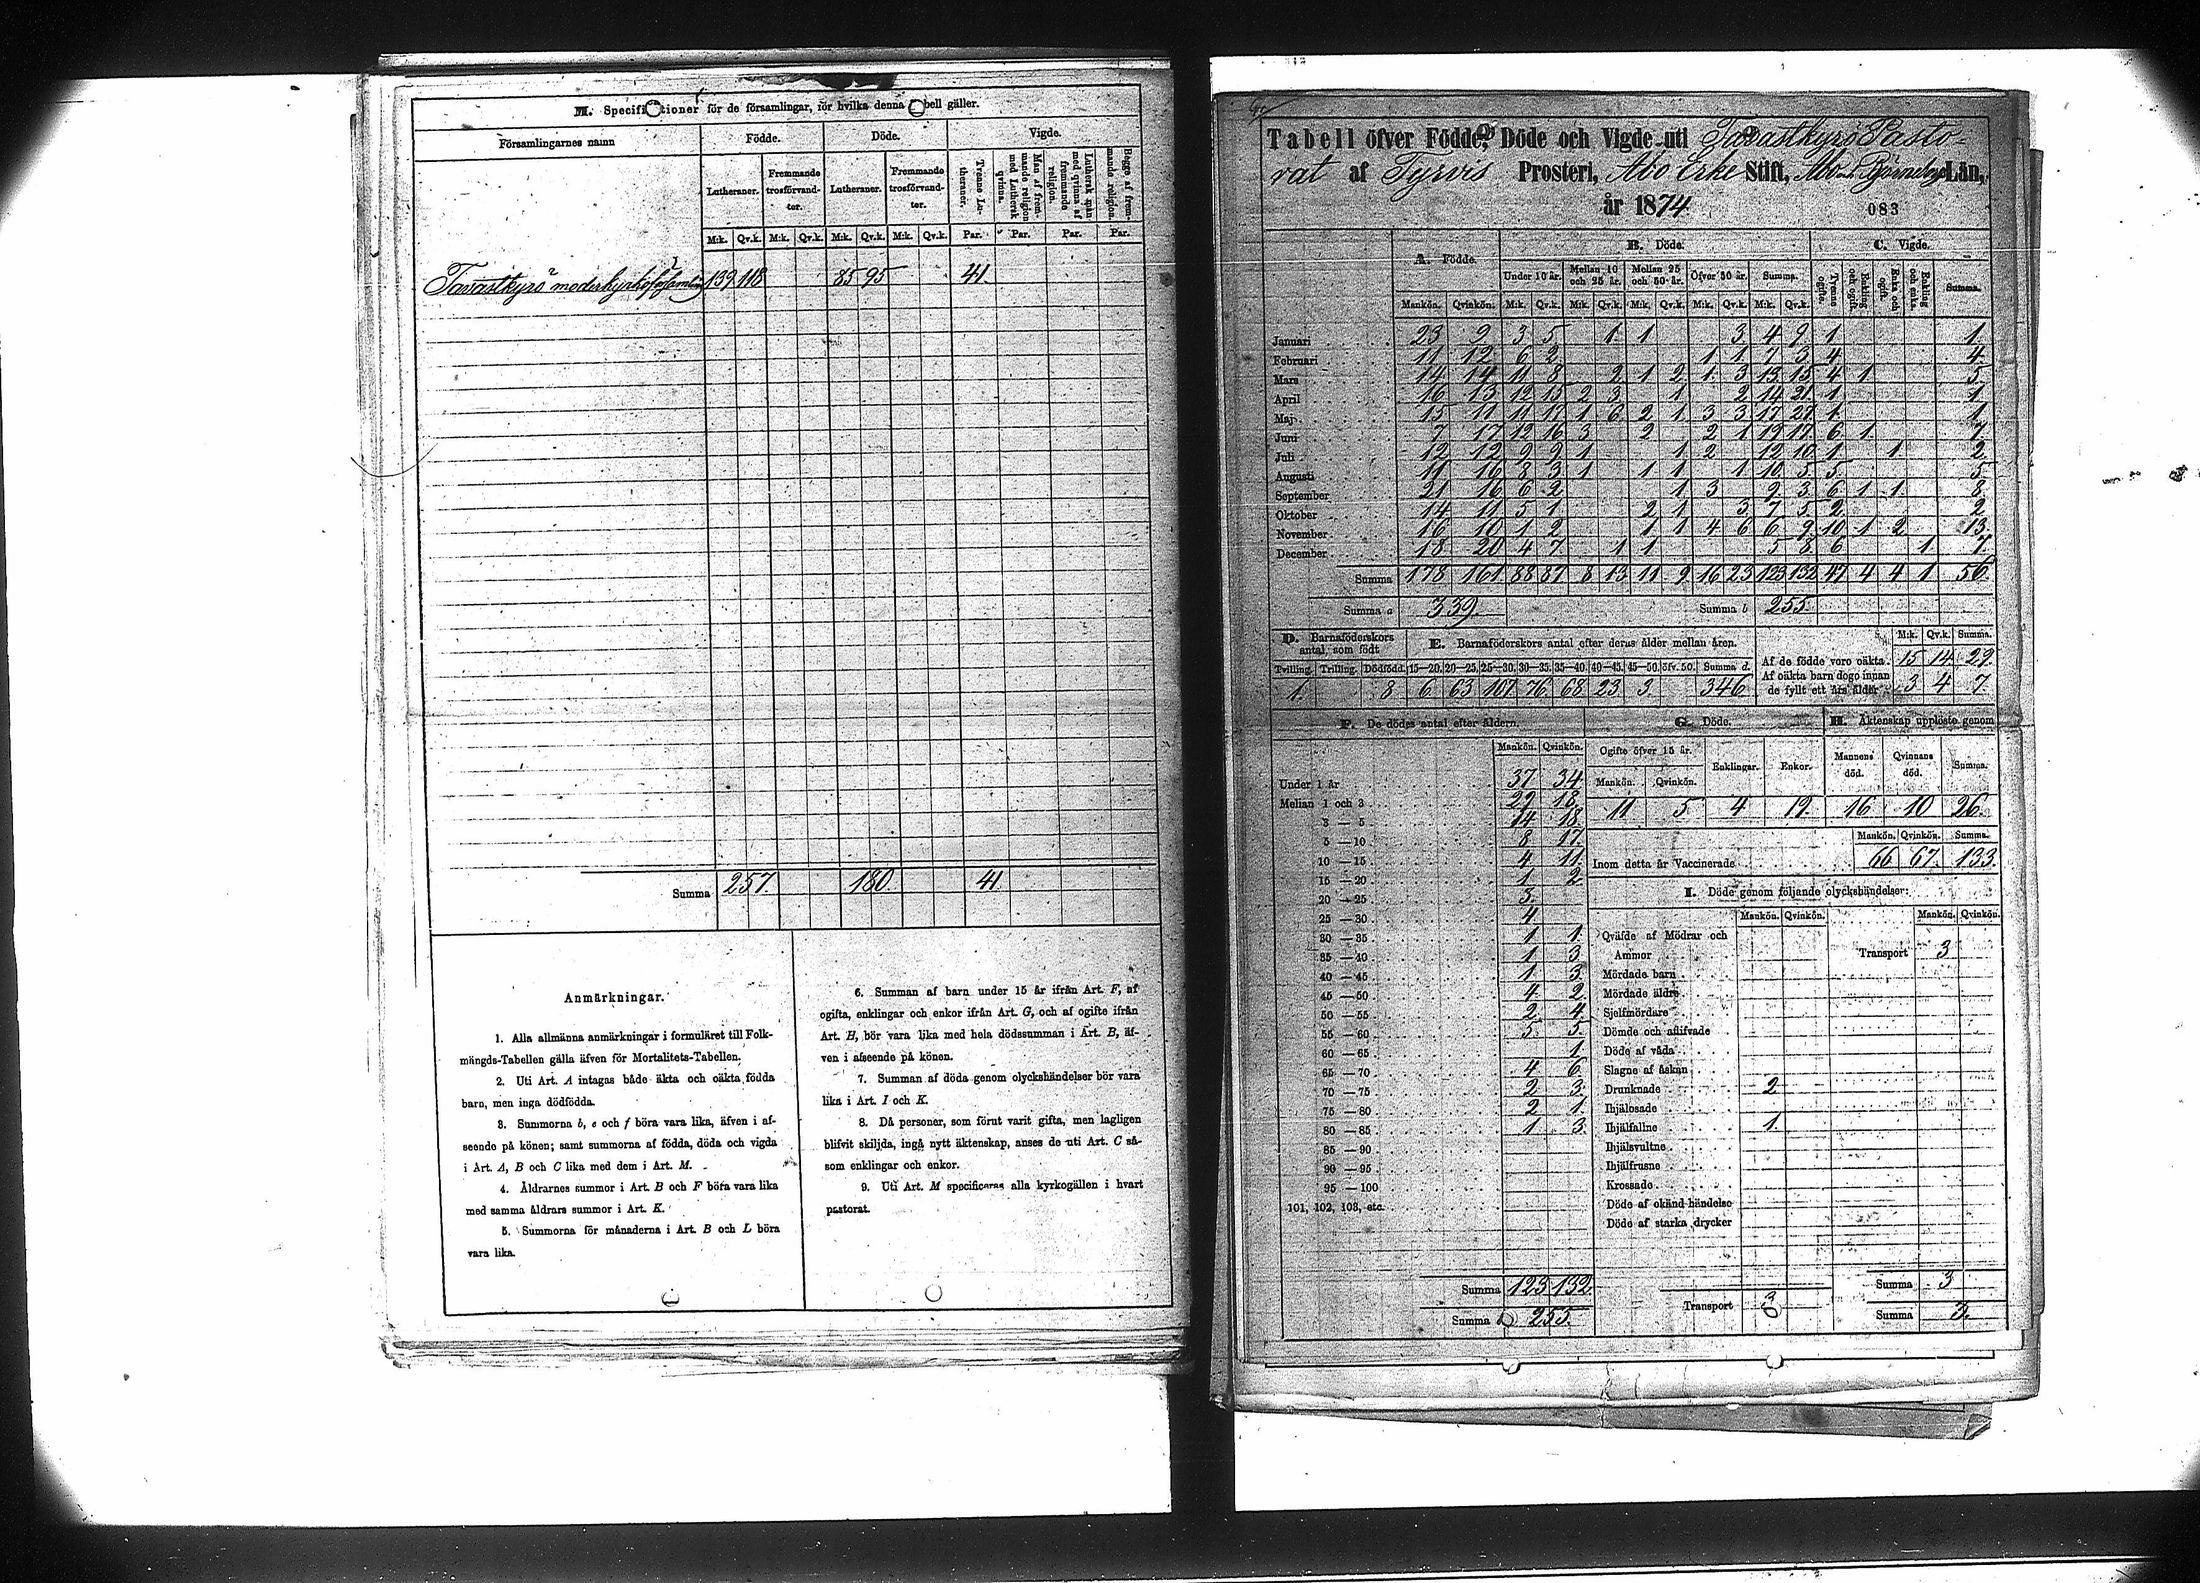 M. Specifikationer för de församlingar, för hvilka denna tabell gäller.
Församlingarnes namn
Födde. Döde. Vigde.
Lutheraner. Fremmande trosförvandter. Lutheraner. Fremmande trosförvandter. Tvenne Lutheraner. Man af fremmande religion med Luthersk qvinna. Luthersk man med qvinna af fremmande religion. Begge af fremmande religion.
M:k. Qv.k. M:k. Qv.k. M:k. Qv.k. M:k. Qv.k. Par. Par. Par. Par.
Tavastkyrö moderkyrkoförsamling 139 118 85 95 41
Summa 257. 180. 41
Anmärkningar.
1. Alla allmänna anmärkningar i formuläret till Folk-
mängds-Tabellen gälla äfven för Mortalitets-Tabellen.
2. Uti Art. A intagas både äkta och oäkta födda
barn, men inga dödfödda.
3. Summorna b, e och f böra vara lika, äfven i af-
seende på könen; samt summorna af födda, döda och vigda
i Art. A, B och C lika med dem i Art. M.
4. Åldrarnes summor i Art. B och F böra vara lika
med samma åldrars summor i Art. K.
5. Summorna för månaderna i Art. B och L böra
vara lika.
6. Summan af barn under 15 år ifrån Art. F, af
ogifta, enklingar och enkor ifrån Art. G, och af ogifte ifrån
Art. H, bör vara lika med hela dödssumman i Art. B, äf-
ven i afseende på könen.
7. Summan af döda genom olyckshändelser bör vara
lika i Art. I och K.
8. Då personer, som förut varit gifta, men lagligen
blifvit skiljda, ingå nytt äktenskap, anses de uti Art. C så-
som enklingar och enkor.
9. Uti Art. M specificeras alla kyrkogällen i hvart
pastorat.
Tabell öfver Födde, Döde och Vigde uti Tavastkyrö Pasto-
rat af Tyrvis Prosteri, Åbo Erke Stift, Åbo Björneborgs Län,
år 1874
083
A. Födde. B. Döde. C. Vigde.
Under 10 år. Mellan 10 och 25 år. Mellan 25 och 50 år. Öfver 50 år. Summa. Tvenne ogifte. Enkling och ogift. Enka och ogift. Enkling och enka. Summa.
Mankön. Qvinkön. M:k. Qv.k. M:k. Qv.k. M:k. Qv.k. M:k. Qv.k. M:k. Qv.k.
Januari 23 9 3 5 1 1 3 4 9 1 1
Februari 11 12 6 2 1 1 7 3 4 4
Mars 14 14 11 8 2 1 2 1 3 13 15 4 1 5
April 16 13 12 15 2 3 1 2 14 21 1 1
Maj 15 11 11 17 1 6 2 1 3 3 17 27 1 1
Juni 7 17 12 16 3 2 2 1 19 17 6 1 7
Juli 12 12 9 9 1 1 2 12 10 1 1 2
Augusti 11 16 8 3 1 1 1 1 10 5 5 5
September 21 16 6 2 1 3 9 3 6 1 1 8
Oktober 14 11 5 1 2 1 3 7 5 2 2
November 16 10 1 2 1 1 4 6 6 9 10 1 2 13
December 18 20 4 7 1 1 5 8 6 1 7
Summa 178 161 88 87 8 13 11 9 16 23 123 132 47 4 4 1 56
Summa a 339 Summa b 255
D. Barnaföderskors antal, som född
E. Barnaföderskors antal efter deras ålder mellan åren.
Tvilling. Trilling. Dödfödd. 15—20. 20—25. 25—30. 30—35. 35—40. 40—45. 45—50. öfv. 50. Summa d.
1. 8 6 63 107 76 68 23 3 346
M:k. Qv.k. Summa.
Af de födde voro oäkta 15 14 29
Af oäkta barn dogo innan
de fyllt ett års ålder 3 4 7.
F. De dödes antal efter åldern.
Mankön. Qvinkön.
Under 1 år 37 34
Mellan 1 och 3 29 18
3 — 5 14 18
5 — 10 8 17
10 — 15 4 11
15 — 20 1 2
20 — 25 3
25 — 30 4
30 — 35 1 1
35 — 40 1 3
40 — 45 1 3
45 — 50 4 2
50 — 55 2 4
55 — 60 5 5
60 — 65 1
65 — 70 4 6
70 — 75 2 3
75 — 80 2 1
80 — 85 1 3
85 — 90
90 — 95
95 — 100
101, 102, 103, etc.
Summa 123 132
Summa 255.
G. Döde.
Ogifte öfver 15 år. Enklingar. Enkor.
Mankön. Qvinkön.
11 5 4 19
H. Äktenskap upplöste genom
Mannens död. Qvinnans död. Summa.
16 10 26
Mankön. Qvinkön. Summa.
Inom detta år Vaccinerade 66 67 133
I. Döde genom följande olyckshändelser:
Mankön. Qvinkön. Mankön. Qvinkön.
Qväfde af Mödrar och
Ammor
Transport 3
Mördade barn
Mördade äldre
Sjelfmördare
Dömde och aflifvade
Döde af våda
Slagne af åskan
Drunknade 2
Ihjälosade
Ihjälfallne 1
Ihjälsvultne
Ihjälfrusne
Krossade
Döde af okänd händelse
Döde af starka drycker
Summa 3
Transport 3
Summa 3.